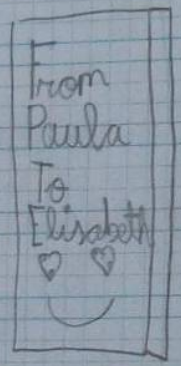 From
Paula
To
Elisabeth